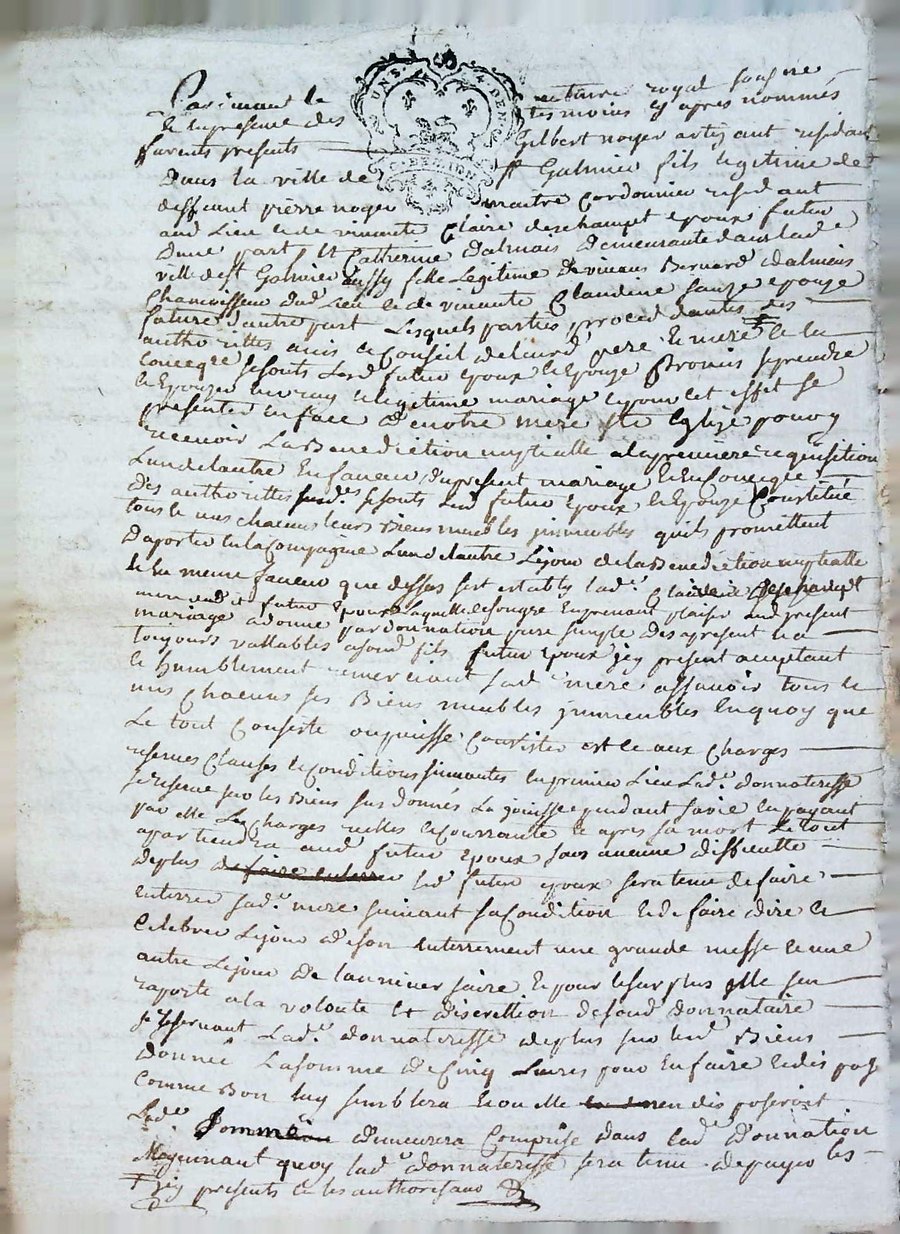 Pardevant le notaire royal soussigne
Et en presence des tesmoins cy apres nommés
parents presents Gilbert noyer artisant residant
Dans la ville de st Galmier fils legitime de
deffeunt pierre noyer maitre Cordonnier residant
aud. Lieu et de vivante Claire deschampt epoux futur
Dune part, Et Catherine Dalmais Demeurante dans lad.e
ville de st Galmier aussy fille Legitime de vivans Bernard Dalmais
Chanvisseur dud. Lieu et de vivante Claudine epouze
future d'autre part Lesquels parties procedantes des
authorittes avis et Conseil de leurd. pere et mere et de la
se sont Lesd. futur epoux et epouze Promis se prendre
et Epouzer en vray et legitime mariage et pour cet effet se
presenter en face de notre mere ste Eglize pour y
recevoir La Benediction nuptialle a la premiere requisition
Lun de lautre En faveur du present mariage et
des authorittes susd.es se sonts Lesd. futur Epoux et Epouze Constitué
tous et uns chacuns leurs Biens meubles immeubles quils promettent
Daporter en la Compagnie Lun de lautre Lejour de la Benediction nuptialle
Et En meme faveur que dessus sest establi lad.e Claire Deschampt
mere dud.t futur Epoux Laquelle de son gre En prenant plaisir aud. present
mariage a donne par donnation pure simple des a present et a
toujours vallables a sond. fils futur Epoux icy present acceptant
et humblement remerciant sad.e mere assavoir tous et
uns Chacuns ses Biens meubles immeubles En quoy que
Le tout Consiste ou puisse Consister et ce aux charges
reserves Clauses et Conditions suivantes en premier Lieu Lad.e donnateresse
se reserve sur les Biens sus donnés La jouissance pendant sa vie En payant
par elle Les Charges reelles et Courrante et apres sa mort Le tout
apartiendra aud. futur epoux sans aucune difficulte
deplus de faire enterrer led. futur epoux sera tenu de faire
enterrer sad.e mere suivant sa Condition et de faire dire et
Celebrer Lejour de son enterrement une grande messe et une
autre Lejour de lanniversaire Et pour le surplus Elle sen
raporte a la volonte Et discrettion de sond. donnataire
se Reservant Lad.e donnateresse deplus sur lesd. Biens
donnée La somme de Cinq Livres pour En faire et disposer
Comme Bon luy semblera et ou elle nen disposeroit
Lad.e Somme demeurera Comprise dans lad.e Donnation
Moyennant quoy lad.e donnateresse sera tenu de payer les
icy presents et les authorisans